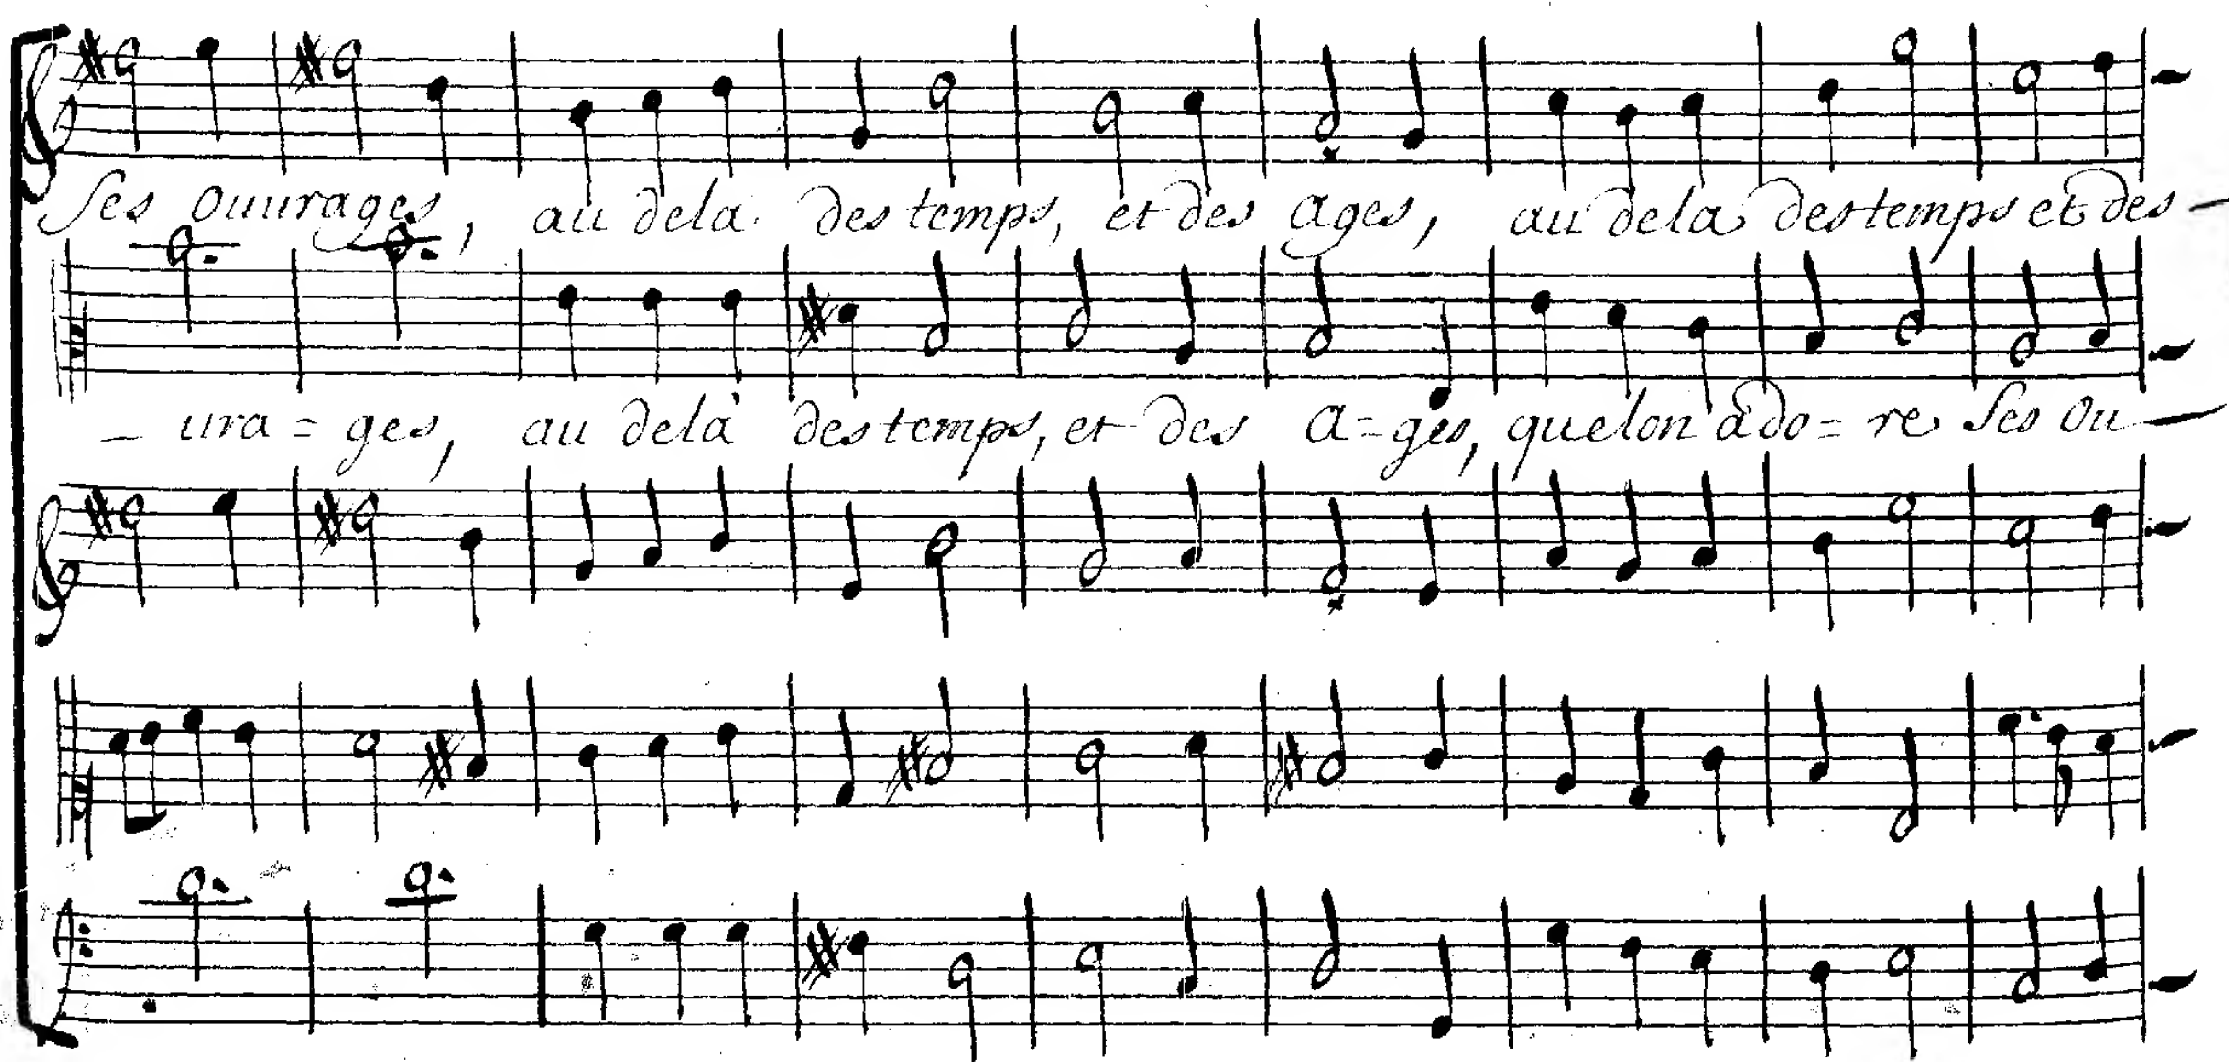 Ses ouurages, au dela des temps, et des ages, au dela des temps et des -
- ura = ges, au delà des temps, et des a = ges, que lon ado = re Ses ou -